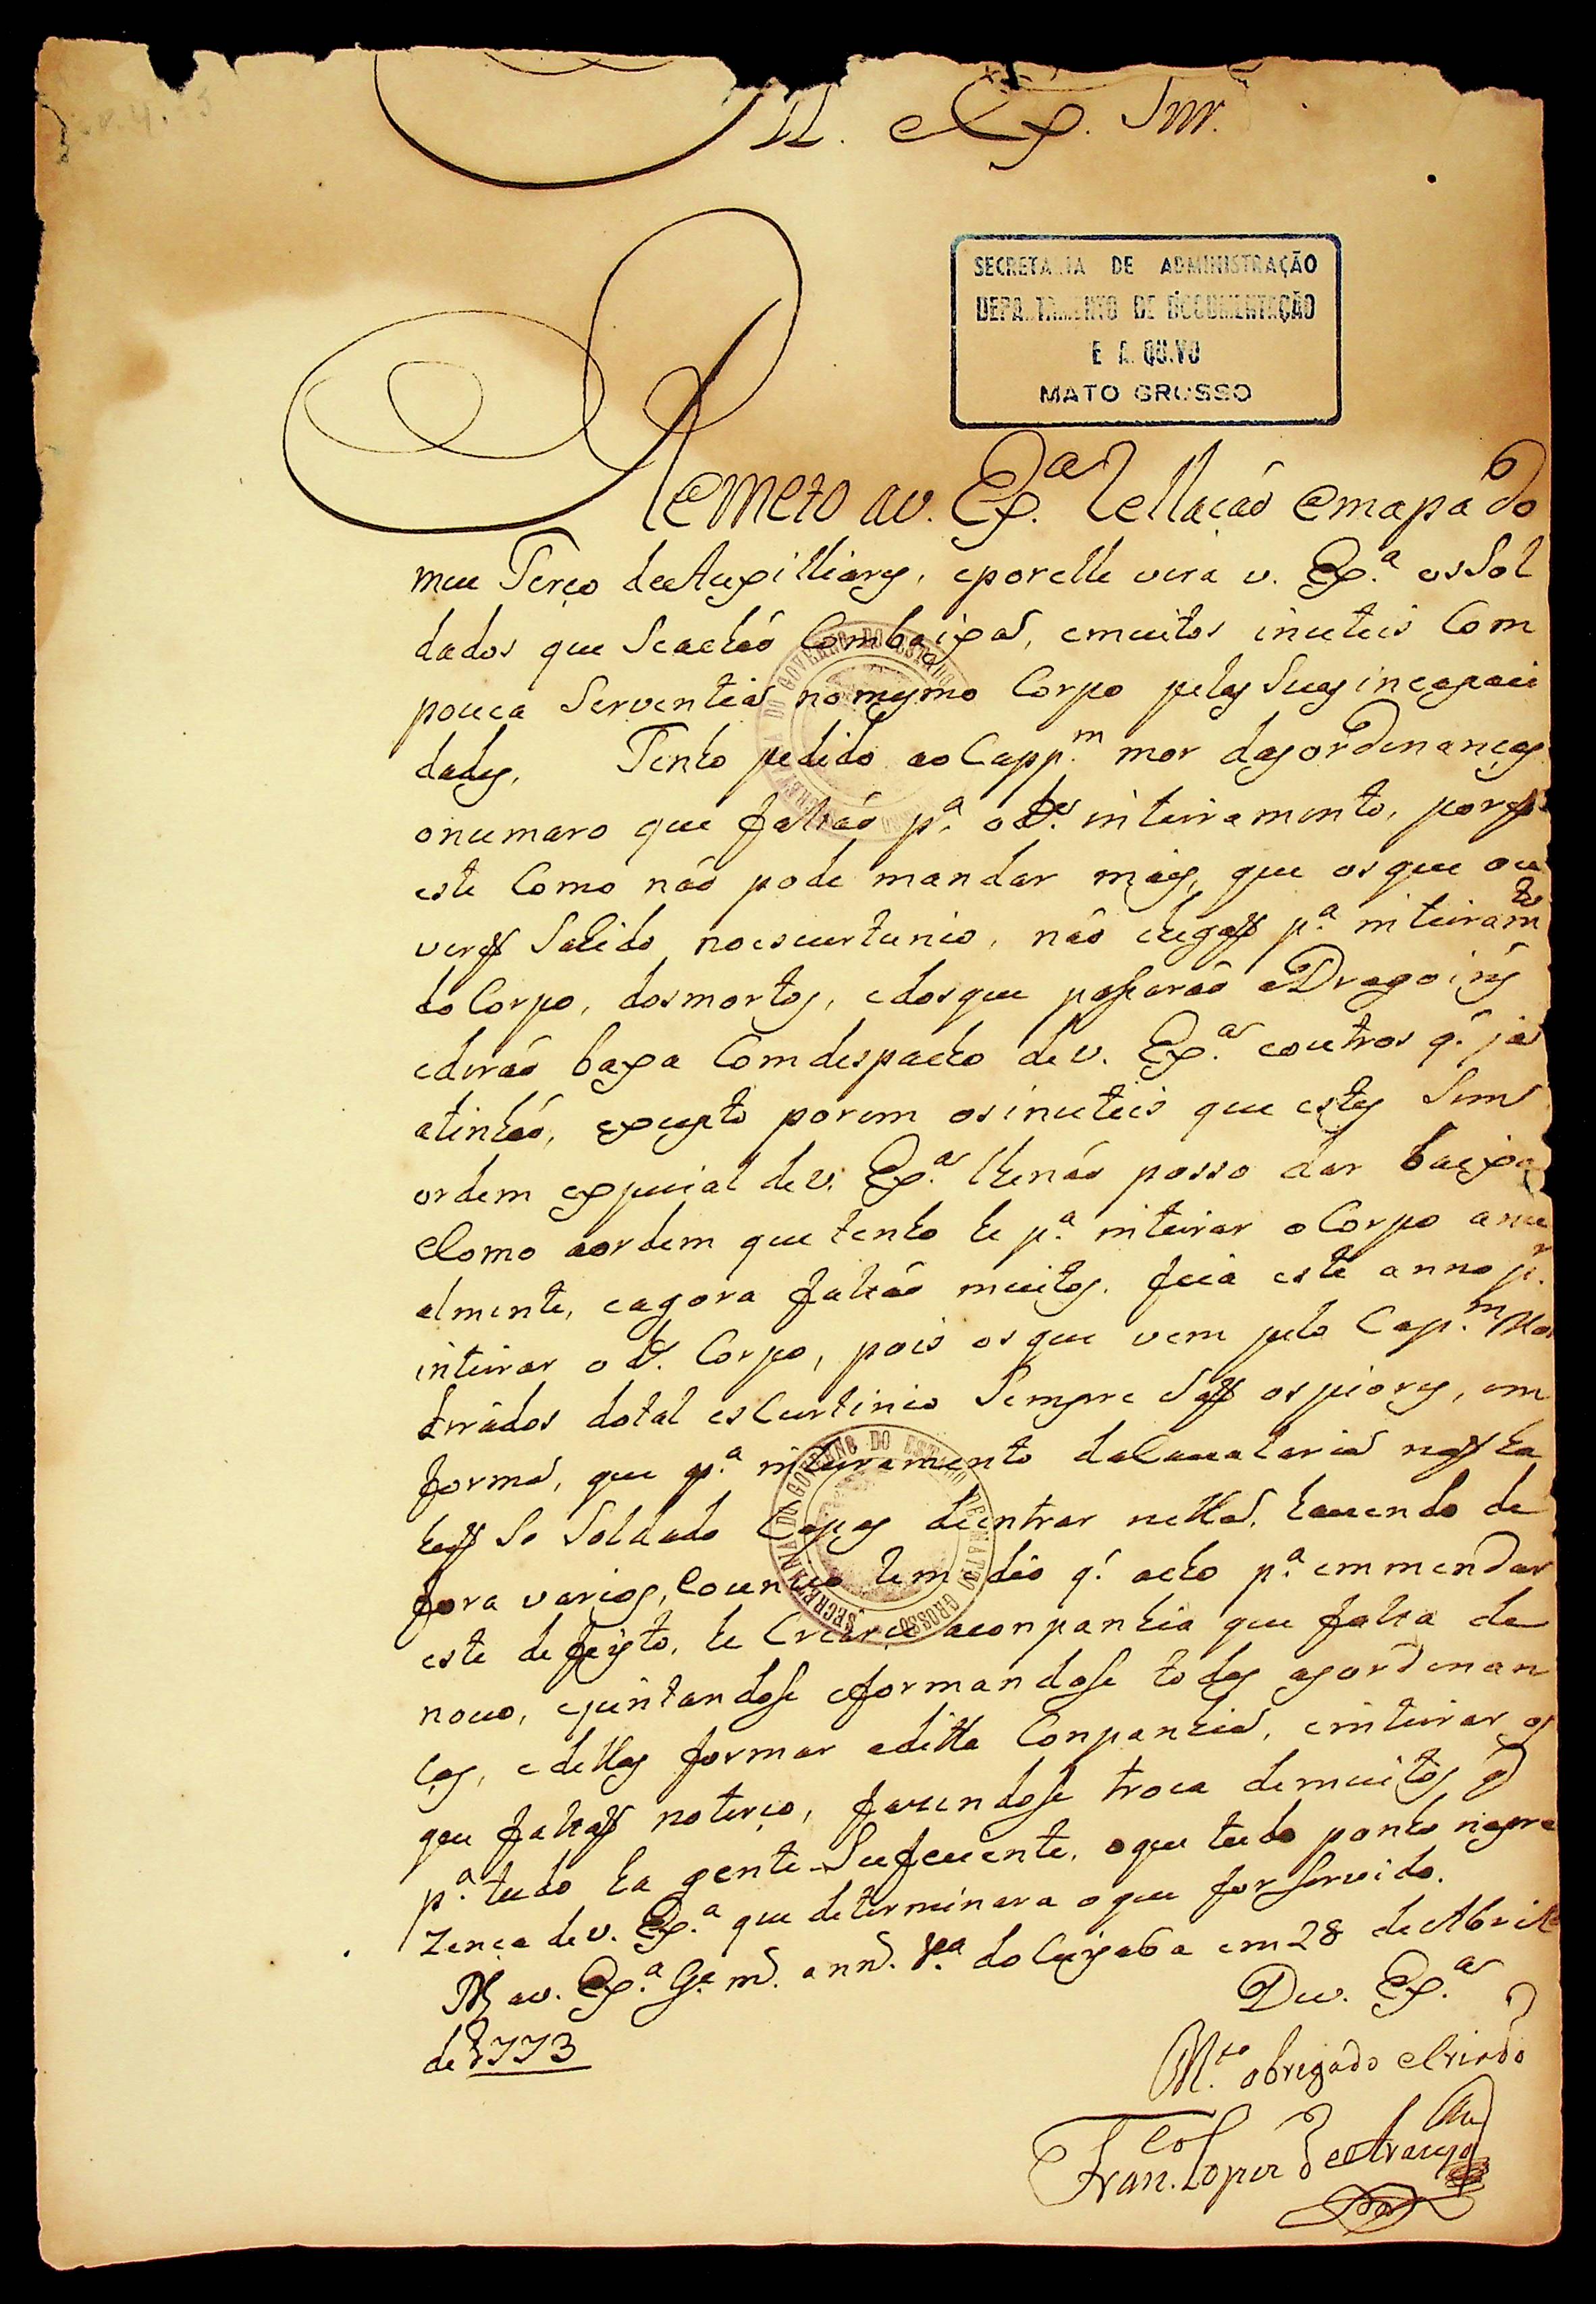 Il. e Ex. Snr.
SECRETARIA DE ADMINISTRAÇÃO
DEPARTAMENTO DE DOCUMENTAÇÃO
E ARQUIVO
MATO GROSSO
Remeto av. Ex.ª Rellacaó emapa do
meu Terço deAuxilliares, eporelle vera v. Ex.ª osSol
dados que Seachaó Combaixas, emuitos inuteis Com
pouca Serventia nomesmo Corpo pelas Suas incapaci
dades, Tenho pedido aoCapp.m mor dasordenanças
onumaro que faltaó p.ª o d.º inteiramento, porq
este Como naó pode mandar mais, que osque ou
verem Sahido noescurtunio, naó chegaõ p.ª inteiramto
doCorpo, dosmortos, edosque pasaraó aDragoins
ederaó baxa Comdespacho dev. Ex.ª eoutros q. ja
atinhaó, exepto porem osinuteis que estes Sem
ordem expecial dev. Ex.ª lhenaó posso dar baixa
eComo aordem quetenho he p.ª inteirar oCorpo anu
almente, eagora faltaó muitos, feia este anno p.ª
inteirar o d.º Corpo, pois osque vem pelo Cap.m Mor
tirados dotal esCurtinio Sempre Saõ ospiores, em
forma, que p.ª inteiramento daCaualaria naõ ha
hum So Soldado Capas deentrar nella, hauendo de
fora varios, Counico remedio q. acho p.ª emmendar
este defeyto, he Crearce aconpanhia que falta de
nouo, ejuntandose eformandose todas asordenan
ças, edellas formar aditta Conpanhia, einteirar os
que faltaõ noterço, fazendose troca demuitos q
p.ª tudo ha gente Sufeciente, oque tudo ponho napre
zença dev. Ex.ª que determinara oque for Servido.
av. Ex.ª G.e m. ann. V.ª doCuyaba em 28 deAbril
de 1773
Dev. Ex.ª
M.to obrigado eCriado
Fran.co Lopes deAraujo
SECRETARIA DO GOVERNO DO ESTADO DE MATTO GROSSO
SECRETARIA DO GOVERNO DO ESTADO DE MATTO GROSSO